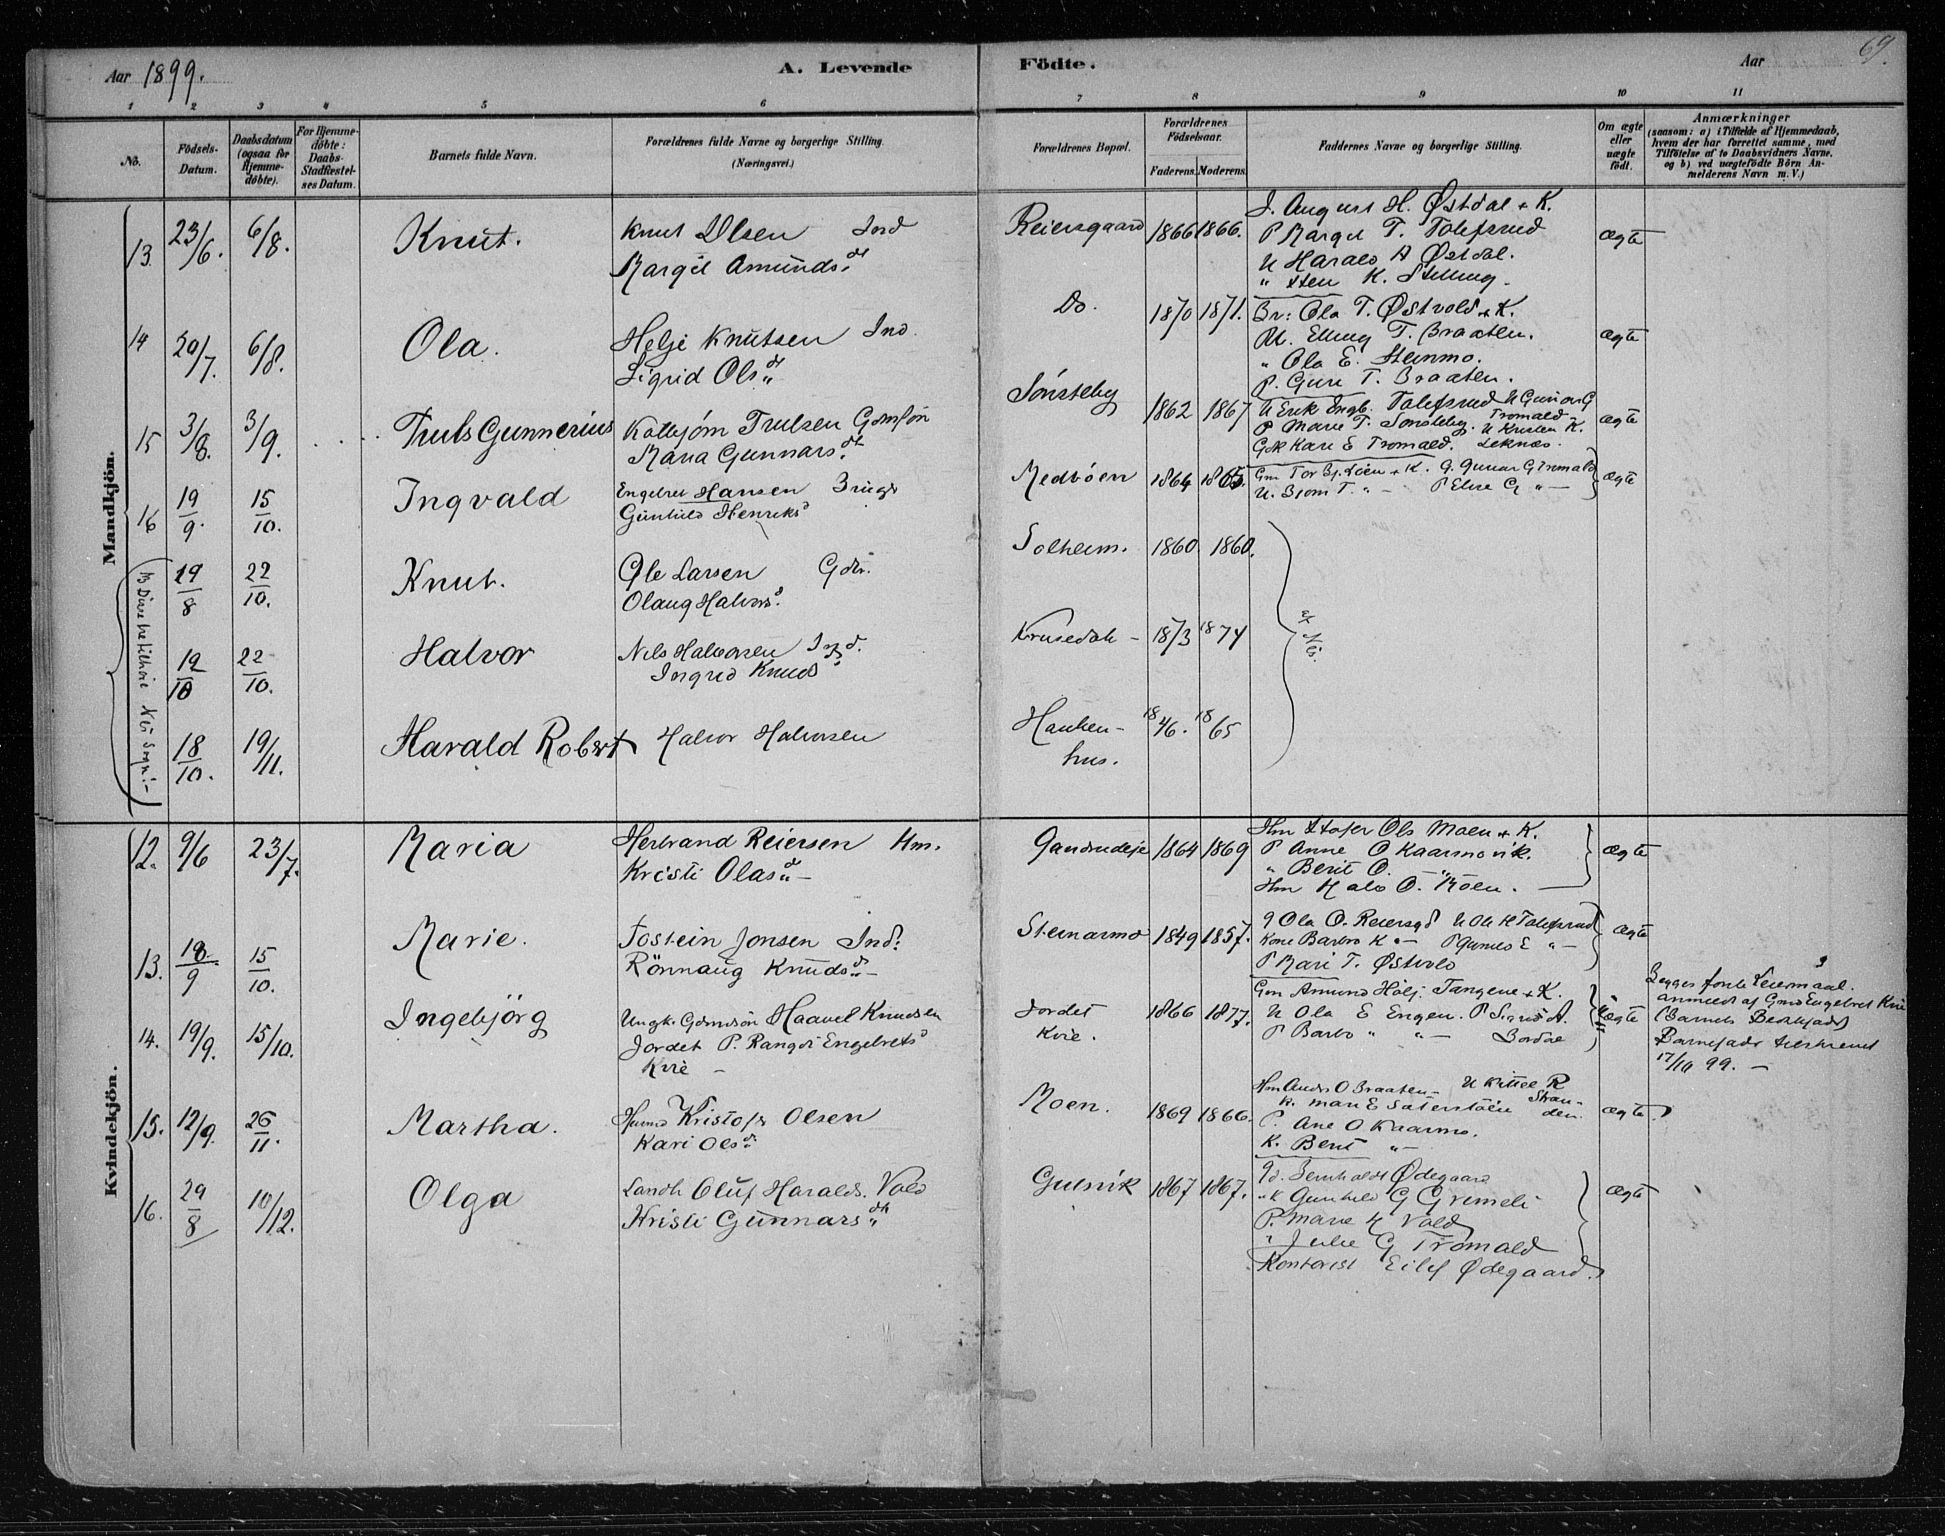 Aar 1899.
A. Levende
Födte.
Aar
69.
1 2 3 4 5 6 7 8 9 10 11
No.
Födsels-
Datum.
Daabsdatum
(ogsaa for
Hjemme-
döbte).
For Hjemme-
döbte:
Daabs-
Stadfæstel-
ses Datum.
Barnets fulde Navn.
Forældrenes fulde Navne og borgerlige Stilling
(Næringsvei.)
Forældrenes Bopæl.
Forældrenes
Födselsaar.
Faderens. Moderens.
Faddernes Navne og borgerlige Stilling.
Om ægte
eller
uægte
födt.
Anmærkninger
(saasom: a) i Tilfælde af Hjemmedaab,
hvem der har forrettet samme, med
Tilföielse af to Daabsvidners Navne,
og b) ved uægtefödte Börn An-
melderens Navn m. V.)
Mandkjön.
13. 23/6. 6/8. Knut.
Knut Olsen Ind
Margit Amunds.dt
Reiersgaard 1866 1866.
J. August H. Østdal + K.
P Margit T. Tolefsrud
U Harald A Østdal.
" Sten K. Stilling.
ægte
14 20/7. 6/8. Ola.
Helje Knutsen Ind.
Sigrid Ols dt
Do. 1870 1871.
Br: Ola T. Østvold + K.
U. Elling T. Braaten.
" Ola E. Steinmo.
P. Guri T. Braaten.
ægte
15 3/8. 3/9. Truls Gunnerius
Kolbjörn Trulsen Gdmsön
Maria Gunnars.dt
Sönsteby 1862 1867
U Erik Engb. Tolefsrud U Gunar G
Tromald
P Marie T. Sönsteby. U Kristen K.
Gdk Kari E Tromald. Leknæs.
ægte
16 19/9. 15/10. Ingvald
Engebret Hansen Brug
Gunhild Henriks d
Medböen 1864 1865.
Gm Tor Bj. Löen + K. G. Gunar G Tromald
U. Bjorn T. " - P Else G " -
ægte
(3 Dissebetilhöre Nes Sogn. -)
29/8 22/10. Knut.
Ole Larsen Gdbr.
Olaug Halvors d.
Solheim. 1860 1860.
19/10 22/10. Halvor
Nils Halvorsen Ind.
Ingrid Knuds d
Krusedok - 1873 1874
18/10. 19/11. Harald Robert
Halvor Halvorsen
Hauken-
hus.
1846. 1865
af Nes.
Kvindekjön.
12. 9/6 23/7. Maria
Herbrand Reiersen Hm.
Kristi Olas d -
Gandrudeje 1864 1869
Hm Stofer Ols Moen + K.
P Anne O Kaarmovik.
" Berit O. - " -
Hm Halv O. Moen. -
ægte
13. 18/9 15/10. Marie.
Tostein Jonsen Ind:
Rönnaug Knuds d -
Steinarmo 1849 1857.
G Ola O. Reiersgd U Ole H Tolefsrud
Kone Barbro K " - P Gunild E " -
P Mari T. Østvold
ægte
14. 19/9. 15/10. Ingebjörg
Ungk. Gdmdsön Haavel Knudsen
Jordet P. Rangdi Engebrets d
Kvie -
Jordet
Kvie.
1866 1877.
Gm Amund Holj. Tangene + K.
U Ola E Engen. P Sigrid A.
P Barbo " " - Bordal
uægte
Begges förste Leiermaal.
anmeldt af Gmd Engebret Kvie
(Barnets Bedstefader)
Barnefader tilskrevet
17/10 99. -
15. 12/9. 26/11. Martha.
Huusmd Kristofr Olsen
Kari Ols d
Moen. 1869 1866.
Hm Anders O Braaten - U Kittel R
K. Mari E Säterstöen Stran-
den.
P. Ane O Kaarmo.
K. Berit " -
ægte
16. 29/8 10/12. Olga
Landh. Oluf Haralds. Vold
Kristi Gunnars dt
Gulsvik 1867 1867.
Gd. Bernhardt Ødegaard
" K Gunhild G Grimeli
P. Marie H Vold
" Julie G Tromald
Kontorist Eilef Ødegaard.
ægte